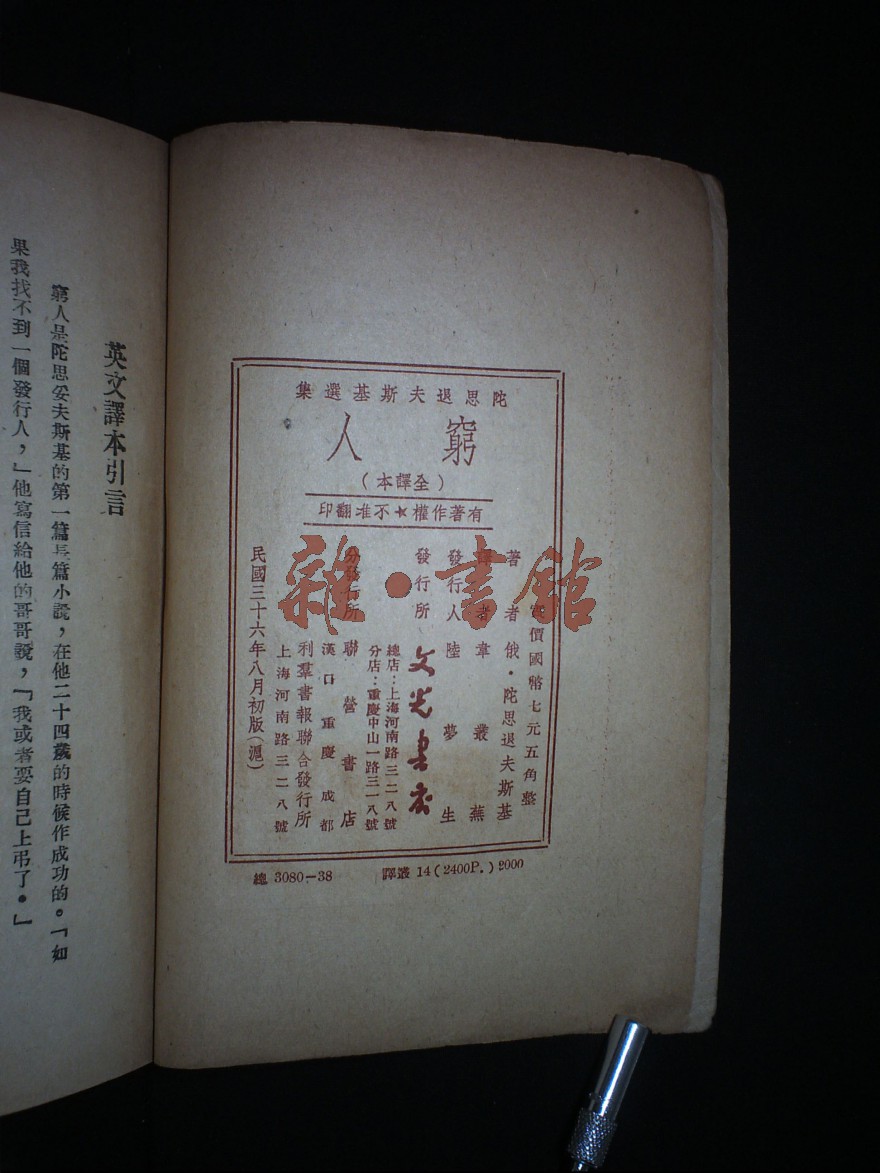 陀思退夫斯基選集
窮人
(全譯本)
有著作權★不准翻印
定價國幣七元五角整
著者 俄·陀思退夫斯基
譯者 韋叢蕪
發行人 陸夢生
發行所 文光書店
總店:上海河南路三二八號
分店:重慶中山一路三一八號
分發行所 聯營書店
漢口 重慶 成都
利羣書報聯合發行所
上海河南路三二八號
民國三十六年八月初版(滬)
總 3080-38 譯叢 14(2400P.)2000
雜·書館
英文譯本引言
窮人是陀思妥夫斯基的第一篇長篇小說,在他二十四歲的時候作成功的。「如
果我找不到一個發行人,」他寫信給他的哥哥說,「我或者要自己上弔了。」